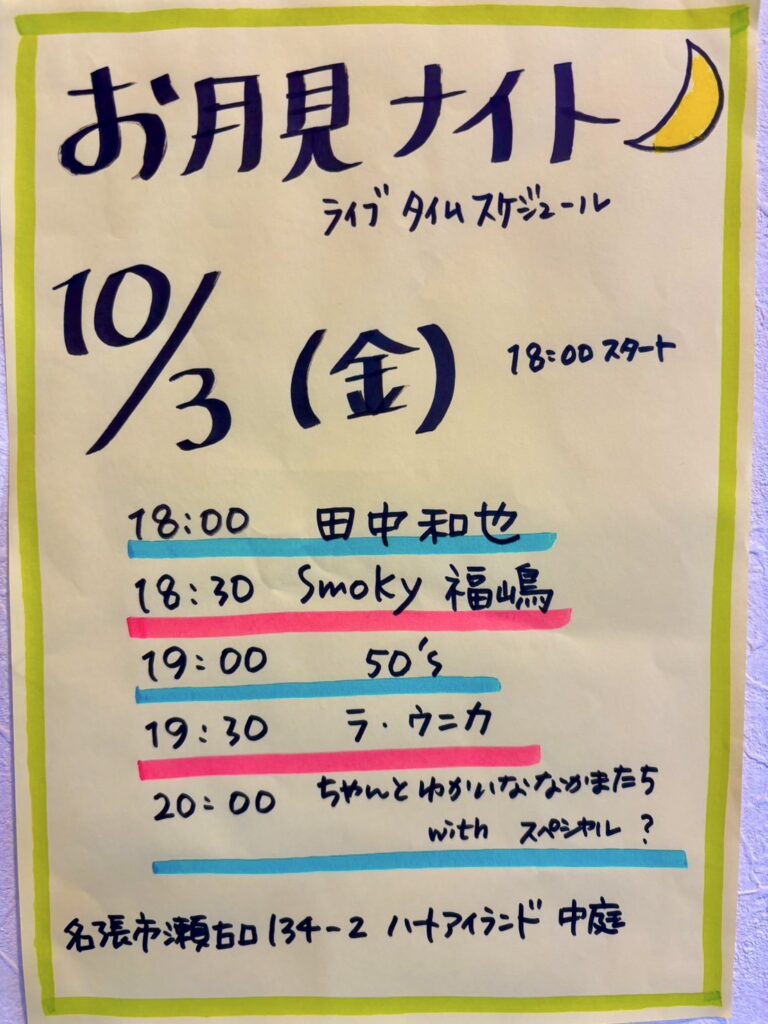 お月見ナイト
ライブ タイムスケジュール
10/3 (金) 18:00 スタート
18:00 田中和也
18:30 Smoky 福嶋
19:00 50's
19:30 ラ・ウニカ
20:00 ちゃんとゆかいななかまたち
with スペシャル ?
名張市瀬古口134-2 ハートアイランド 中庭